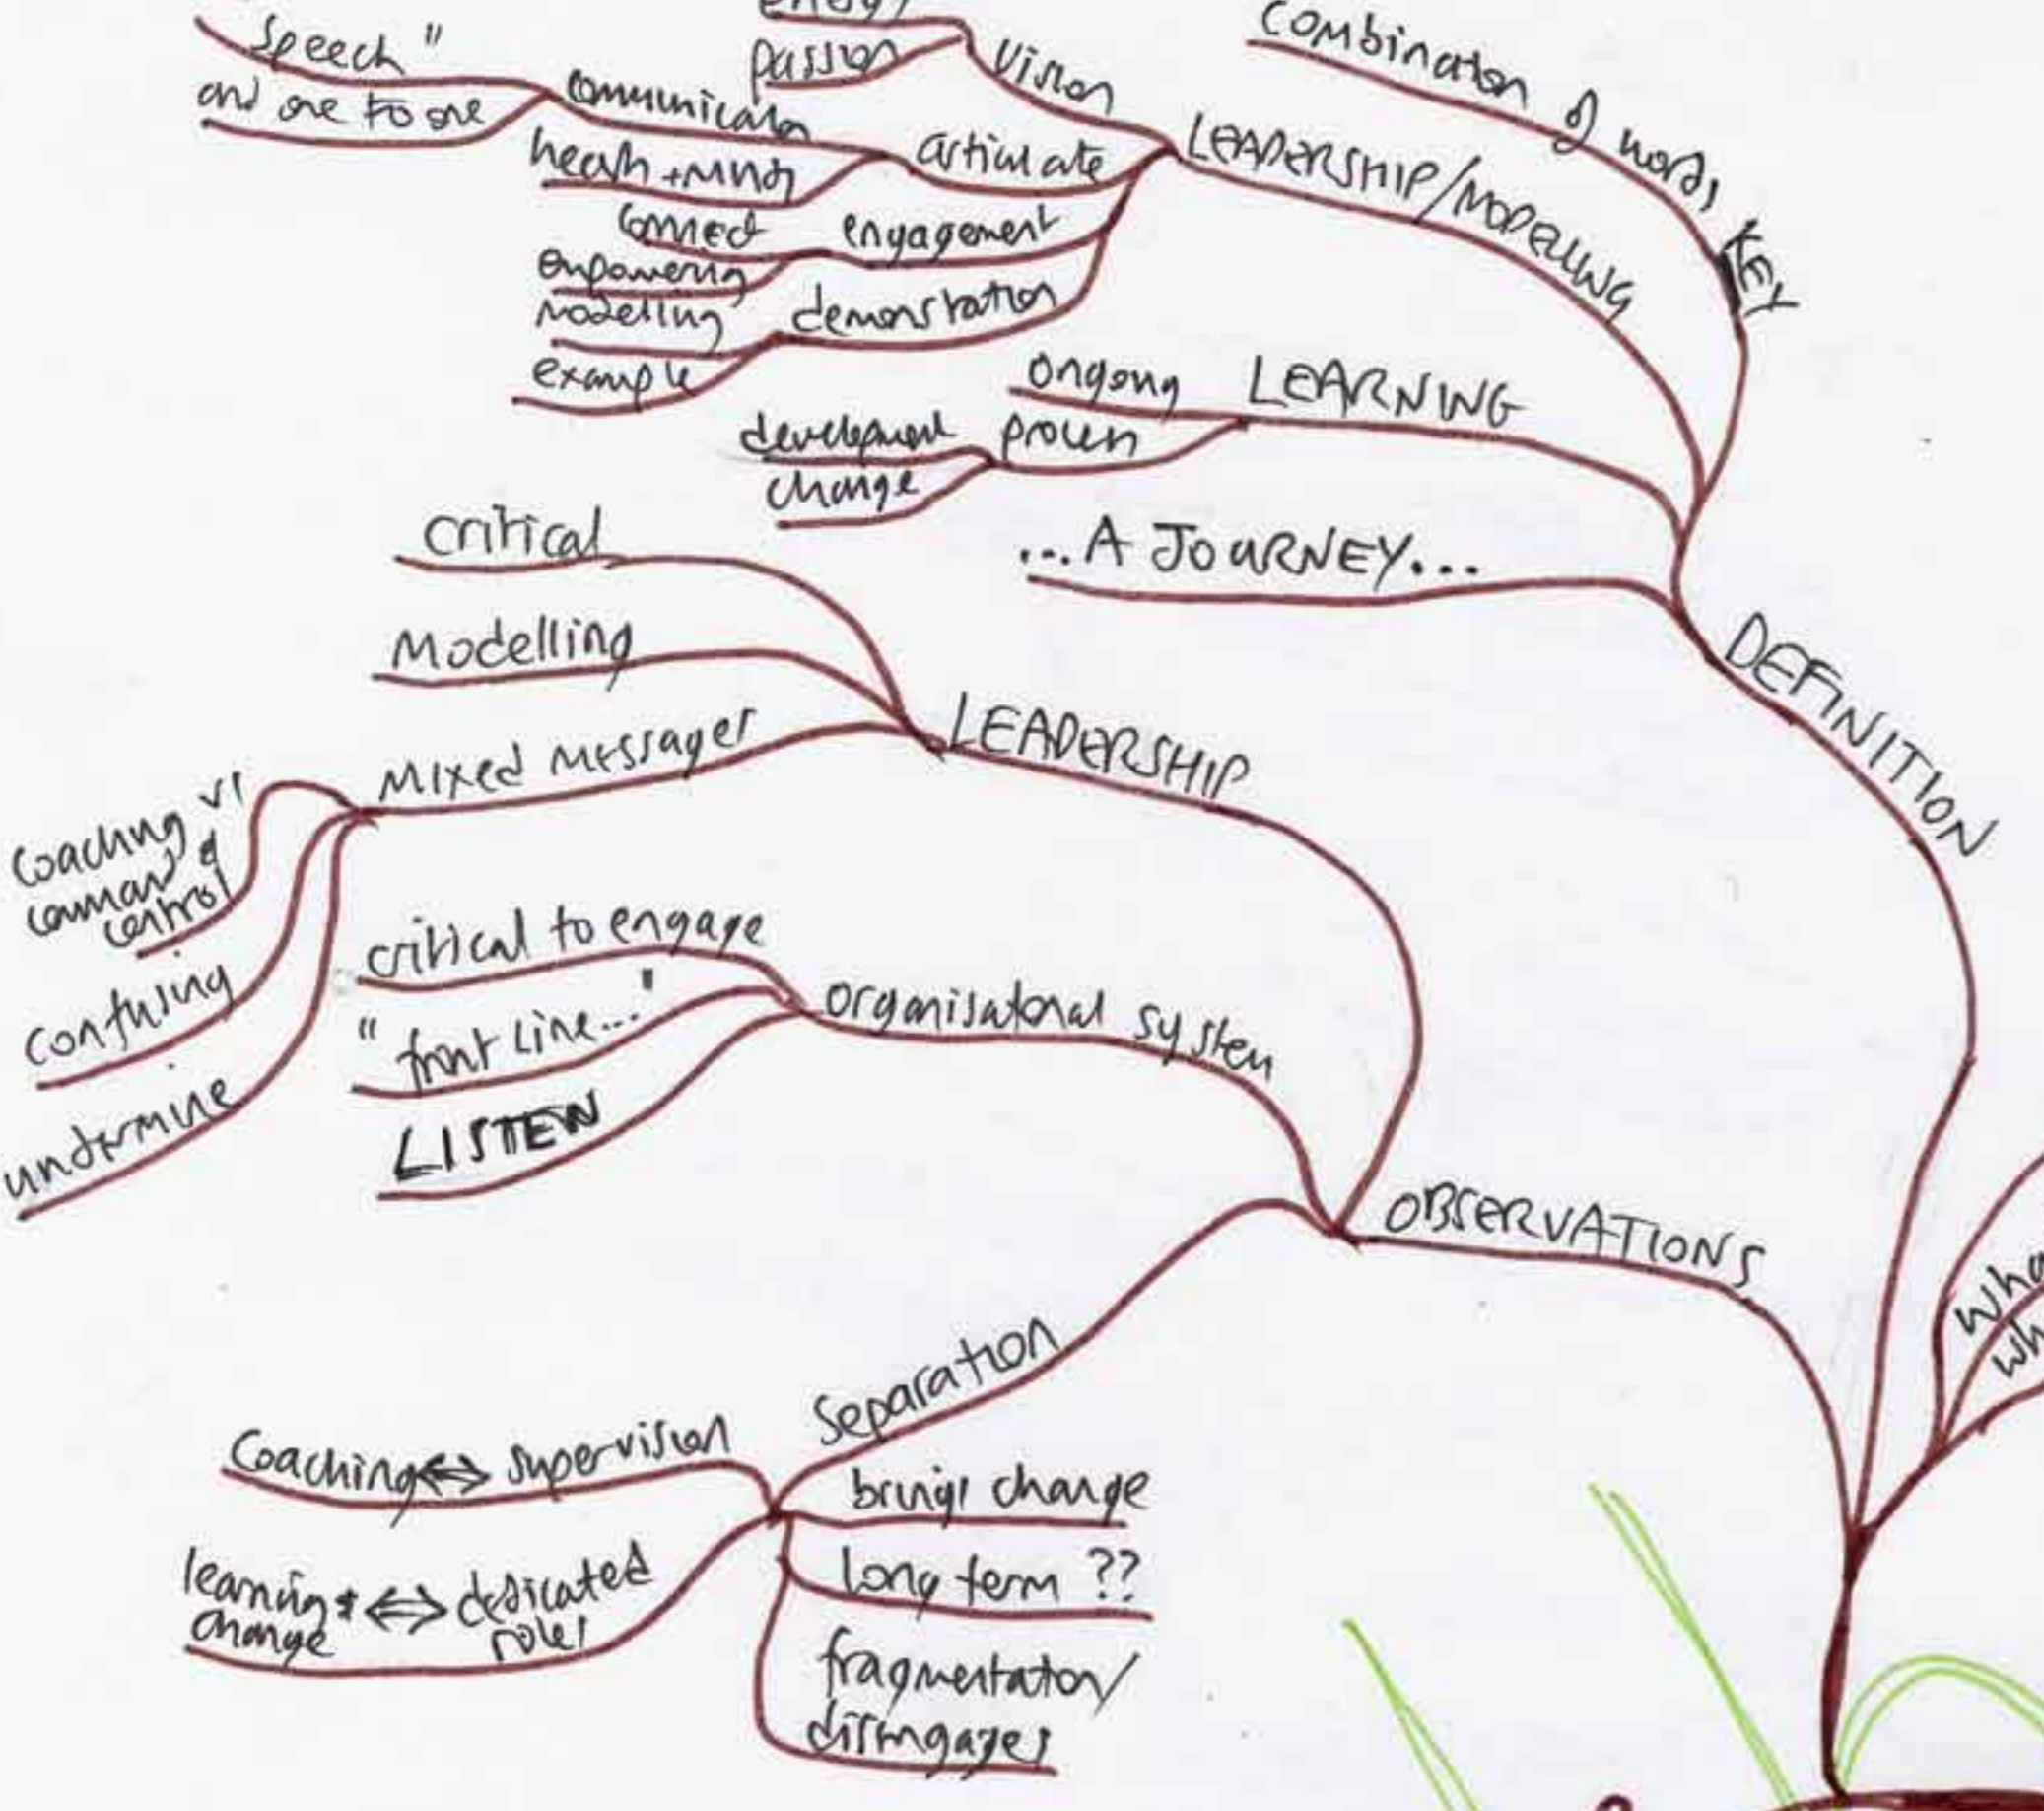 energy
passion
Vision
speech"
and one to one
communication
hearts + minds
articulate
connect
empowering
engagement
modelling
example
demonstration
LEADERSHIP/MODELLING
combination of words KEY
ongoing
LEARNING
development
change
process
...A JOURNEY...
DEFINITION
critical
Modelling
Mixed messages
LEADERSHIP
coaching vs
command &
control
confusing
undermine
critical to engage
"front line..."
LISTEN
organisational system
OBSERVATIONS
Separation
Coaching ⇔ supervision
learning + ⇔ dedicated
change roles
brings change
long term ??
fragmentation/
disengages